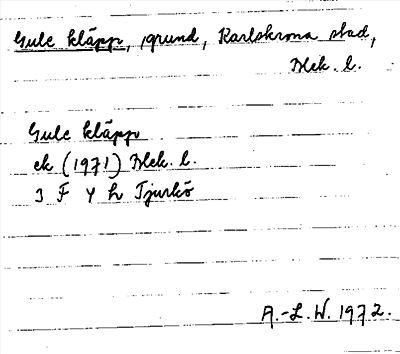 Gule kläpp, grund, Karlskrona stad,
Blek. l.
Gule kläpp
ek (1971) Blek. l.
3 F 4 h Tjurkö
A.-L. W. 1972.